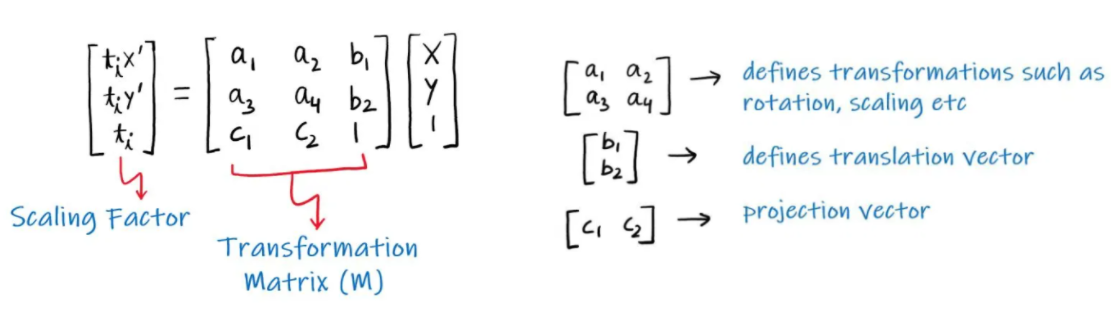 [tᵢx'] = [a₁ a₂ b₁] [x]
[tᵢy'] [a₃ a₄ b₂] [y]
[tᵢ] [c₁ c₂ 1] [1]
Scaling Factor
Transformation
Matrix (M)
[a₁ a₂] → defines transformations such as
[a₃ a₄] rotation, scaling etc
[b₁] → defines translation vector
[b₂]
[c₁ c₂] → projection vector